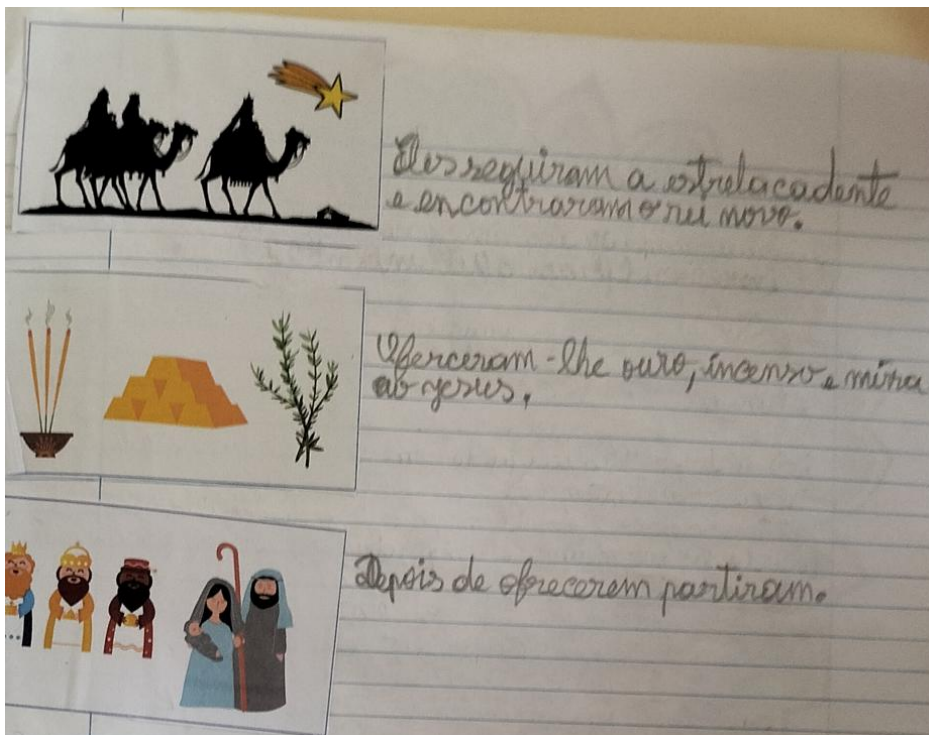 Eles seguiram a estrela cadente
e encontraram o rei novo.
Oferceram-lhe ouro, incenso e mirra
ao jesus.
Depois de ofrecerem partiram.